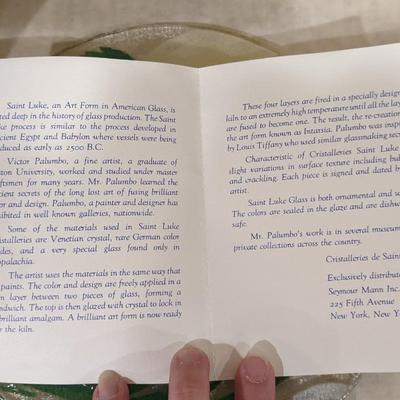 Saint Luke, an Art Form in American Glass, is
ted deep in the history of glass production. The Saint
ke process is similar to the process developed in
cient Egypt and Babylon where vessels were being
duced as early as 2500 B.C.
Victor Palumbo, a fine artist, a graduate of
ton University, worked and studied under master
ftsmen for many years. Mr. Palumbo learned the
cient secrets of the long lost art of fusing brilliant
or and design. Palumbo, a painter and designer has
ibited in well known galleries, nationwide.
Some of the materials used in Saint Luke
stalleries are Venetian crystal, rare German color
des, and a very special glass found only in
palachia.
The artist uses the materials in the same way that
paints. The color and design are freely applied in a
n layer between two pieces of glass, forming a
dwich. The top is then glazed with crystal to lock in
brilliant amalgam. A brilliant art form is now ready
r the kiln.
These four layers are fired in a specially design
kiln to an extremely high temperature until all the lay
are fused to become one. The result, the re-creation
the art form known as Intarsia. Palumbo was inspi
by Louis Tiffany who used similar glassmaking secr
Characteristic of Cristalleries Saint Luke
slight variations in surface texture including bub
and crackling. Each piece is signed and dated by
artist.
Saint Luke Glass is both ornamental and u
The colors are sealed in the glaze and are dishwa
safe.
Mr. Palumbo's work is in several museum
private collections across the country.
Cristalleries de Saint
Exclusively distribut
Seymour Mann Inc.
225 Fifth Avenue
New York, New Y